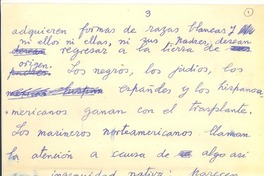 3
1
adquieren formas de razas blancas y
ni ellos ni ellas, ni sus padres, desean
regresar a la tierra de
origen. Los negros, los judíos, los
españoles y los hispanoa-
mericanos ganan con el trasplante.
Los marineros norteamericanos llaman
la atención a causa de algo así
ingenuidad nativa: Parecen